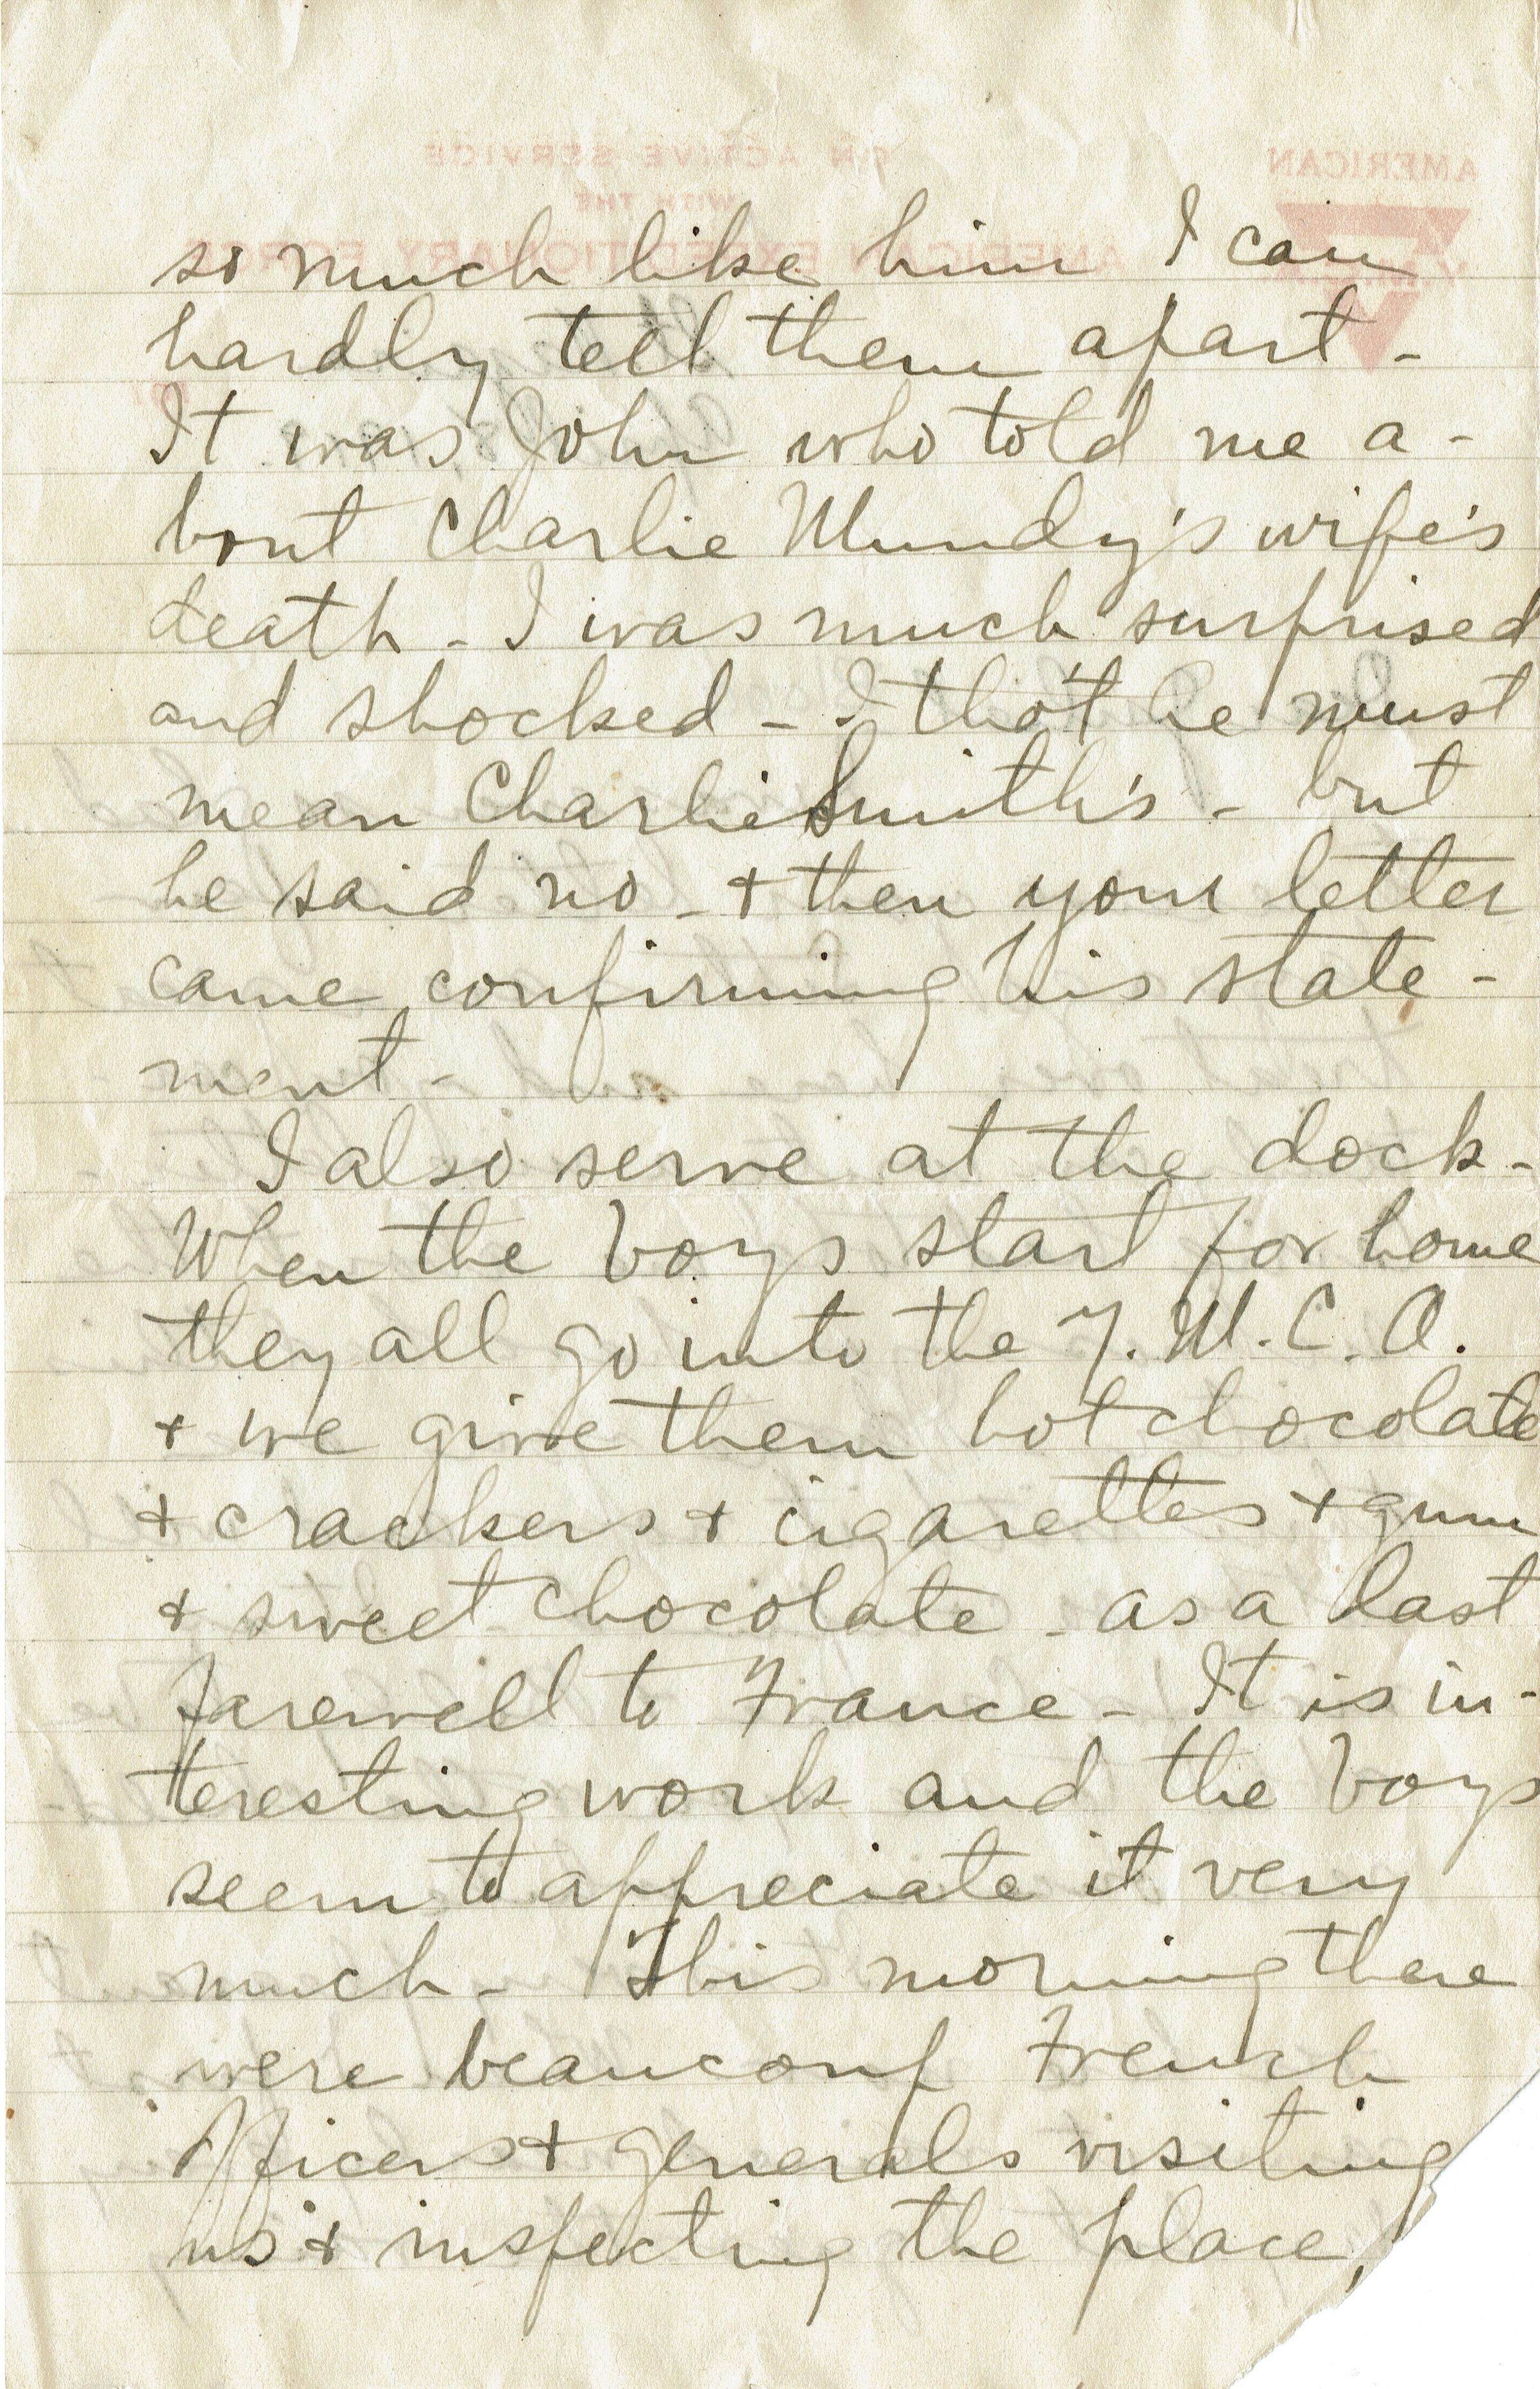 so much like him I can
hardly tell them apart -
It was John who told me a-
bout Charlie Mundy's wife's
death - I was much surprised
and shocked - I tho't he must
mean Charlie Smith's - but
he said no - + then your letter
came confirming his state-
ment -
I also serve at the dock -
When the boys start for home
they all go into the Y.M.C.A.
+ we give them hot chocolate
+ crackers + cigarettes + gum
+ sweet chocolate - as a last
farewell to France - It is in-
teresting work and the boys
seem to appreciate it very
much - This morning there
were beaucoup French
officers + generals visiting
us + inspecting the place,
AMERICAN
ON ACTIVE SERVICE
WITH THE
AMERICAN EXPEDITIONARY FORCE